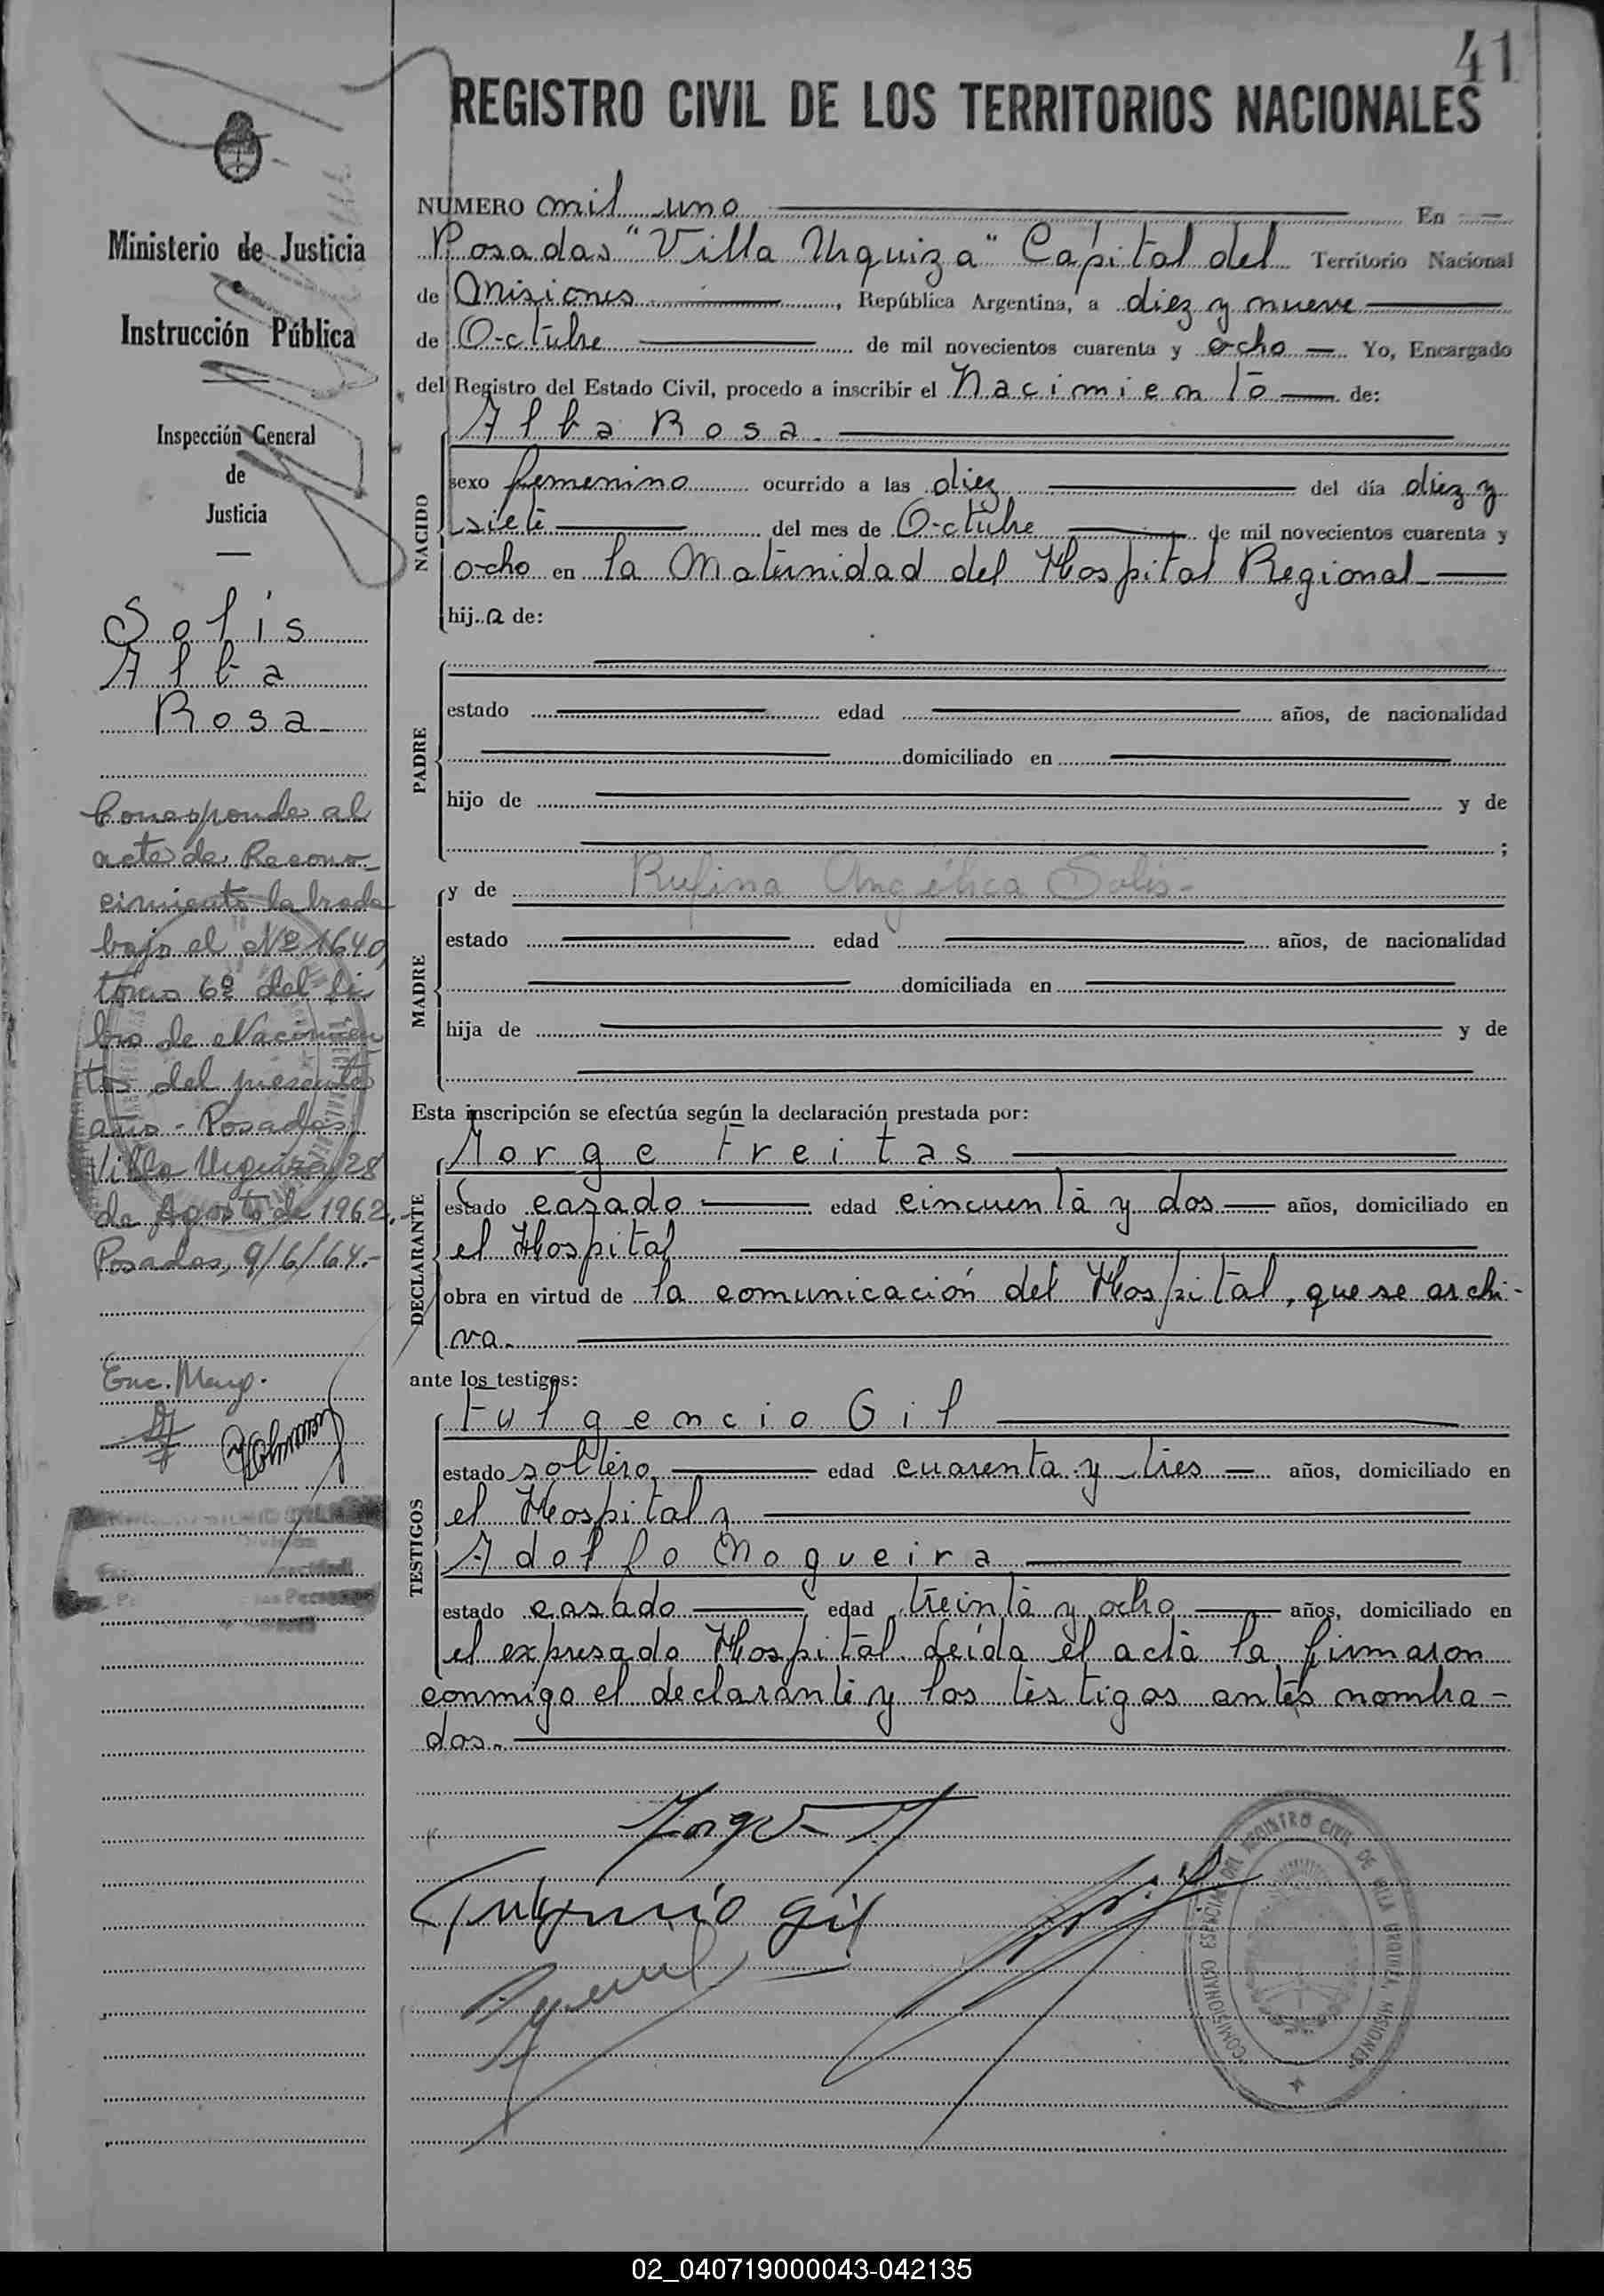 41
REGISTRO CIVIL DE LOS TERRITORIOS NACIONALES
Ministerio de Justicia
Instrucción Pública
Inspección General
de
Justicia
Solis
Alba
Rosa
Corresponde al
acta de Recono-
cimiento labrada
bajo el Nº 1640,
tomo 6º del li
bro de Nacimien
tos del presente
año - Posadas
Villa Urquiza 28
de Agosto de 1962.-
Posadas, 9/6/64.-
NUMERO mil uno En
Posadas "Villa Urquiza" Capital del Territorio Nacional
de Misiones, República Argentina, a diez y nueve
de Octubre de mil novecientos cuarenta y ocho Yo, Encargado
del Registro del Estado Civil, procedo a inscribir el Nacimiento de:
NACIDO
Alba Rosa.
sexo femenino ocurrido a las diez del día diez y
siete del mes de Octubre de mil novecientos cuarenta y
ocho en la Maternidad del Hospital Regional
hija de:
PADRE
estado edad años, de nacionalidad
domiciliado en
hijo de y de
;
MADRE
y de Rufina Angélica Solis-
estado edad años, de nacionalidad
domiciliada en
hija de y de
Esta inscripción se efectúa según la declaración prestada por:
DECLARANTE
Jorge Freitas
estado casado edad cincuenta y dos años, domiciliado en
el Hospital
obra en virtud de la comunicación del Hospital, que se archi-
va.
ante los testigos:
TESTIGOS
Fulgencio Gil
estado soltero edad cuarenta y tres años, domiciliado en
el Hospital y
Adolfo Nogueira
estado casado edad treinta y ocho años, domiciliado en
el expresado Hospital. Leída el acta la firmaron
conmigo el declarante y los testigos antes nombra-
dos.-
Fulgencio Gil
COMISIONADO ESPECIAL DEL REGISTRO CIVIL DE VILLA URQUIZA, MISIONES
02_040719000043-042135